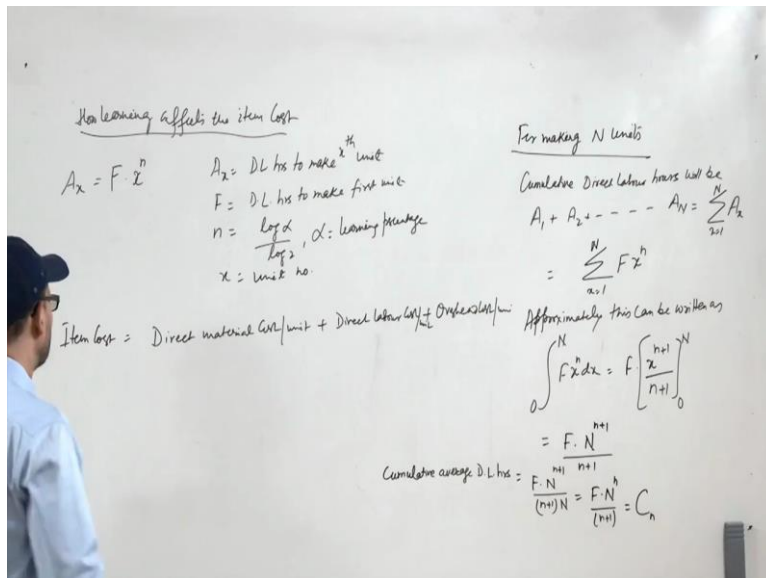 How learning affects the item Cost
Aₓ = F·xⁿ
Aₓ = DL hrs to make xᵗʰ unit
F = D.L hrs to make first unit
n = logα / log2, α = learning percentage
x = unit no.
Item Cost = Direct material Cost/unit + Direct labour Cost/unit + Overhead Cost/uni
For making N units
Cumulative Direct Labour hours will be
A₁ + A₂ + - - - - Aɴ = ∑ₓ₌₁ᴺ Aₓ
= ∑ₓ₌₁ᴺ Fxⁿ
Approximately this can be written as
∫₀ᴺ Fxⁿdx = F·[xⁿ⁺¹ / n+1]₀ᴺ
= F·Nⁿ⁺¹ / n+1
Cumulative average D.L hrs = F·Nⁿ⁺¹ / (n+1)N = F·Nⁿ / (n+1) = Cₙ